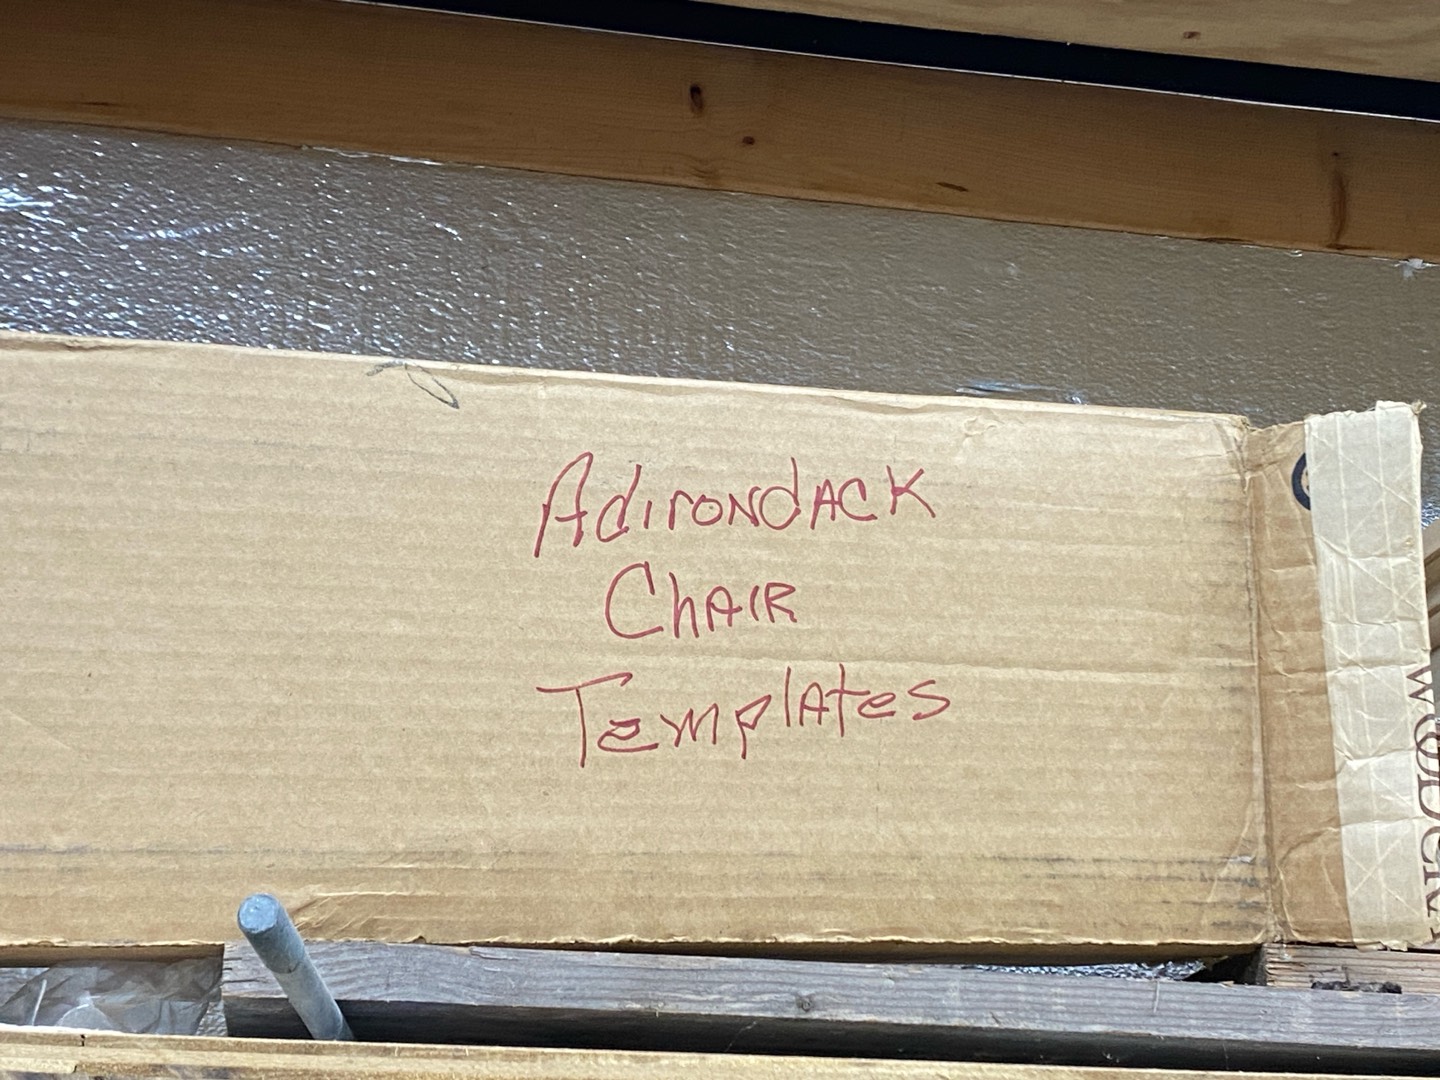 Adirondack
Chair
Templates